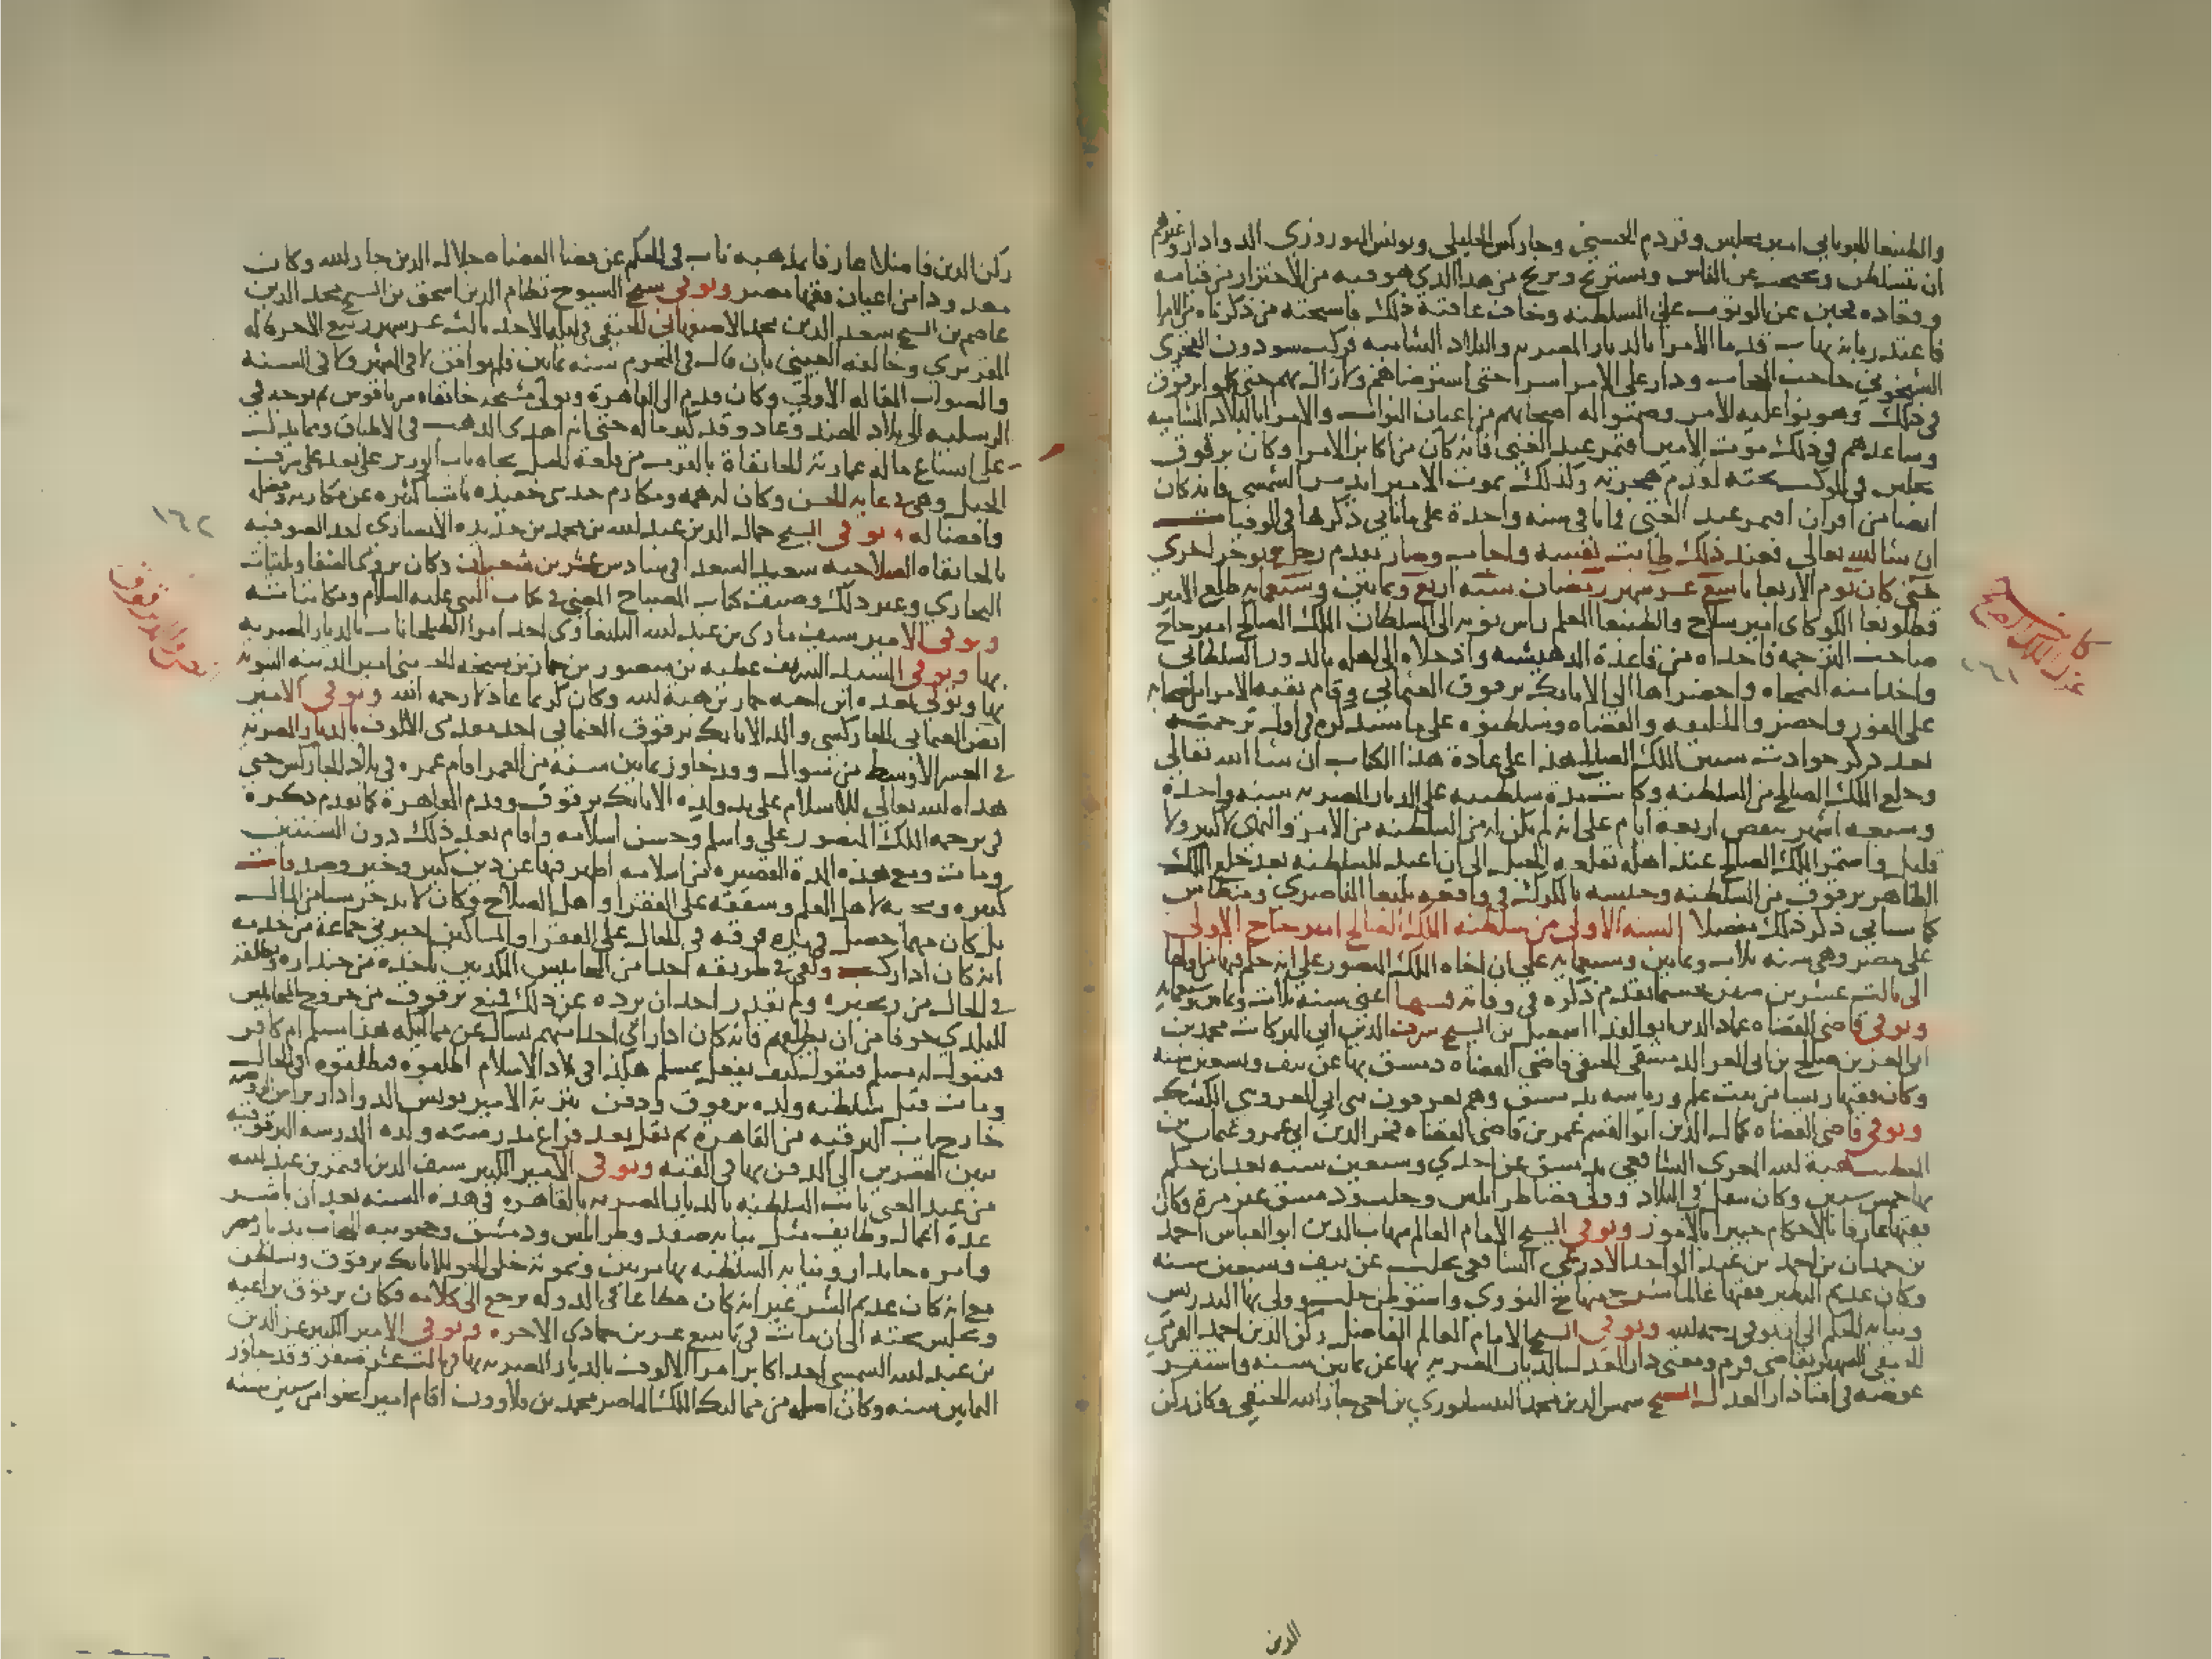 والطنبغا الجوباني امير مجلس وقردم الحسني وجاركس الخليلي ويونس النوروزي الدوادار وغيرهم
ان تتسلطن وتحتجب عن الناس وتستريح وتريح من هذا الذي هو فيه من الاحتراز من قيامه
وقعاده فجبن عن الوثوب على السلطنة وخاف عاقبة ذلك فاستحثه من ذكرناه من الامرا
فاعتذر بانه يهاب قدما الامرا بالديار المصرية والبلاد الشامية فركب سودون الفخري
الشيخوني حاجب الحجاب ودار على الامرا سرا حتى استرضاهم ولا زال بهم حتى كلموا برقوق
في ذلك وهونوا عليه الامر وضمنوا له اصحابهم من اعيان النواب والامرا بالبلاد الشامية
وساعدهم في ذلك موت الامير اقتمر عبد الغني فانه كان من اكابر الامرا وكان برقوق
يجلس في الموكب تحته لقدم هجرته وكذلك بموت الامير ايدمر الشمسي فانه كان
ايضا من اقران اقتمر عبد الغني فماتا في سنة واحدة على ما ياتي ذكرها في الوفيات
ان شا الله تعالى فعند ذلك طابت نفسه واجاب وصار يقدم رجل ويوخر اخرى
حتى كان يوم الاربعا تاسع عشر شهر رمضان سنة اربع وثمانين وسبعماية طلع الامير
قطلوبغا الكوكاي امير سلاح والطنبغا المعلم راس نوبة الى السلطان الملك الصالح امير حاج
صاحب الترجمة فاخذاه من قاعدة الدهيشة وادخلاه الى اهله بالدور السلطاني
واخذا منه النمجاه واحضراها الى الاتابك برقوق العثماني وقام بقية الامرا من اصحابه
على الفور واحضروا الخليفة والقضاة وسلطنوه على ما سنذكره في اول ترجمته
بعد ذكر حوادث سنين الملك الصالح هذا على عادة هذا الكتاب ان شا الله تعالى
وخلع الملك الصالح من السلطنة وكانت مدة سلطنته على الديار المصرية سنة واحدة
وسبعة اشهر تنقص اربعة ايام على انه لم يكن له من السلطنة من الامر والنهي لا كثير ولا
قليل واستمر الملك الصالح عند اهله بقلعة الجبل الى ان اعيد للسلطنة بعد خلع الملك
الظاهر برقوق من السلطنة وحبسه بالكرك في واقعة يلبغا الناصري ومنطاش
كما سياتي ذكر ذلك مفصلا السنة الاولى من سلطنة الملك الصالح امير حاج الاولى
على مصر وهي سنة ثلاث وثمانين وسبعماية على ان اخاه الملك المنصور علي انه حكم فيها من اولها
الى ثالث عشرين صفر حسبما تقدم ذكره في وفاته فيها اعني سنة ثلاث وثمانين وسبعماية
وتوفي قاضي القضاة عماد الدين ابو الفدا اسمعيل بن الشيخ شرف الدين ابي البركات محمد بن
ابي العز بن صالح بن ابي العز الدمشقي الحنفي قاضي القضاة بدمشق بها عن نيف وتسعين سنة
وكان فقيها رييسا من بيت علم ورياسة بدمشق وهم يعرفون ببني ابي العز وبني الكشك
وتوفي قاضي القضاة كمال الدين ابو القسم عمر بن قاضي القضاة فخر الدين ابي عمر وعثمان بن
الخطيب هبة الله المعري الشافعي بدمشق عن احدى وسبعين سنة بعد ان حكم
بها خمس سنين وكان تنقل في البلاد وولي قضا طرابلس وحلب ودمشق غير مرة وكان
فقيها عارفا بالاحكام خبيرا بالامور وتوفي الشيخ الامام العالم شهاب الدين ابو العباس احمد
بن حمدان بن احمد بن عبد الواحد الاذرعي الشافعي بحلب عن نيف وسبعين سنة
وكان عديم النظير فقيها عالما شرح منهاج النووي واستوطن حلب وولي بها التدريس
ونيابة الحكم الى ان توفي رحمه الله وتوفي الشيخ الامام العالم الفاضل ركن الدين احمد القرمي
الحنفي الشهير بقاضي قرم ومفتي دار العدل بالديار المصرية بها عن ثمانين سنة واستقر
عوضه في افتا دار العدل الشيخ شمس الدين محمد النيسابوري بن اخي جار الله الحنفي وكان ركن
الدين
كاين
عزل الملك الصالح
١٦١
ركن الدين فاضلا عارفا بمذهبه ناب في الحكم عن قضا القضاة جلال الدين جار الله وكان
معدودا من اعيان فقها مصر وتوفي شيخ الشيوخ نظام الدين اسحق بن الشيخ مجد الدين
عاصم بن الشيخ سعد الدين محمد الاصفهاني الحنفي في ليلة الاحد ثالث عشر شهر ربيع الاخر قاله
المقريزي وخالفه العيني بان قال في المحرم سنة ثمانين فلم يوافق لا في الشهر ولا في السنة
والصواب المقالة الاولى وكان قدم الى القاهرة وتولى مشيخة خانقاه سرياقوس ثم توجه في
الرسلية الى بلاد الهند وعاد وقد كثر ماله حتى انه اهدى الذهب في الاطباق ومما يدلك
على اتساع ماله عمارته الخانقاة بالقرب من قلعة الجبل تجاه باب الوزير على بعد على شرف
الجبل وهي في غاية الحسن وكان له همة ومكارم
وافضاله وتوفي الشيخ جمال الدين عبد الله بن محمد بن حديدة الانصاري احد الصوفية
بالخانقاه الصلاحية سعيد السعدا في سادس عشرين شعبان وكان يروي الشفا وثلثيات
البخاري وغير ذلك وصنف كتاب المصباح المضي في كتاب النبي عليه السلام ومكاتباته
وتوفي الامير سيف بن عبد الله اليلبغاوي احد امرا الطبلخانات بالديار المصرية
بها وتوفي السيد الشريف عطية بن منصور بن جماز بن شيحة الحسيني امير المدينة النبوية
بها وتولى بعده ابن اخيه جماز بن هبة الله وكان كريما عادلا رحمه الله وتوفي الامير
انص العثماني الجاركسي والد الاتابك برقوق العثماني احد مقدمي الالوف بالديار المصرية
في العشر الاوسط من شوال وقد جاوز ثمانين سنة من العمر اقام عمره في بلاد الجاركس حتى
هداه الله تعالى للاسلام على يد ولده الاتابك برقوق وقدم القاهرة كما تقدم ذكره
في ترجمة الملك المنصور علي واسلم وحسن اسلامه واقام بعد ذلك دون السنتين
ومات ومع هذه المدة القصيرة من اسلامه اظهر فيها عن دين كبير وخير وصدقات
كثيرة ومحبة لاهل العلم وشفقة على الفقرا واهل الصلاح وكان لا يدخر شيا من المال
بل كان مهما حصل في يده فرقه في الحال على الفقرا والمساكين اخبرني جماعة من خدمه
انه كان اذا ركب ولقي في طريقه احدا من المحابيس المكديين ياخذه من جنداره ويطلقه
في الحال من زنجيره ولم يقدر احد ان يرده عن ذلك فمنع برقوق من خروج المحابيس
للتكدي خوفا من ان يطلقهم فانه كان اذا راى احدا منهم يسال عن مماليكه هذا مسلم ام كافر
فيقول له مسلم فيقول كيف يفعل بمسلم هكذا في بلاد الاسلام اطلقوه فيطلقوه في الحال
ومات قبل سلطنة ولده برقوق ودفن بتربة الامير يونس الدوادار
خارج باب البرقية من القاهرة ثم نقل بعد فراغ مدرسته ولده المدرسة البرقوقية
ببين القصرين الى الدفن بها في القبة وتوفي الامير الكبير سيف الدين اقتمر بن عبد الله
من عبد الغني نايب السلطنة بالديار المصرية بالقاهرة في هذه السنة بعد ان باشر
عدة اعمال وظايف مثل نيابة صفد وطرابلس ودمشق وحجوبية الحجاب بديار مصر
وامرة جاندار ونيابة السلطنة بها مرتين وبموته خلى الجو للاتابك برقوق وتسلطن
مع انه كان عديم الشر غير انه كان مطاعا في الدولة يرجع الى كلامه فكان برقوق يراعيه
ويجلس تحته الى ان مات في تاسع عشرين جمادى الاخرة وتوفي الامير الكبير عز الدين
بن عبد الله الشمسي احد اكابر امرا الالوف بالديار المصرية بها في ثالث عشر صفر وقد جاوز
الثمانين سنة وكان اصله من مماليك الملك الناصر محمد بن قلاوون اقام اميرا نحوا من ستين سنة
١٦٢
انص والد برقوق